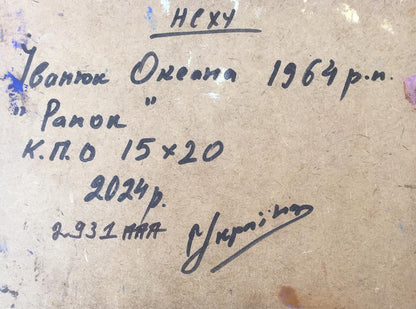 НСХУ
Іванюк Оксана 1964 р.н.
"Ранок"
К.П.О 15×20
2024р.
2931 AAA
Україна